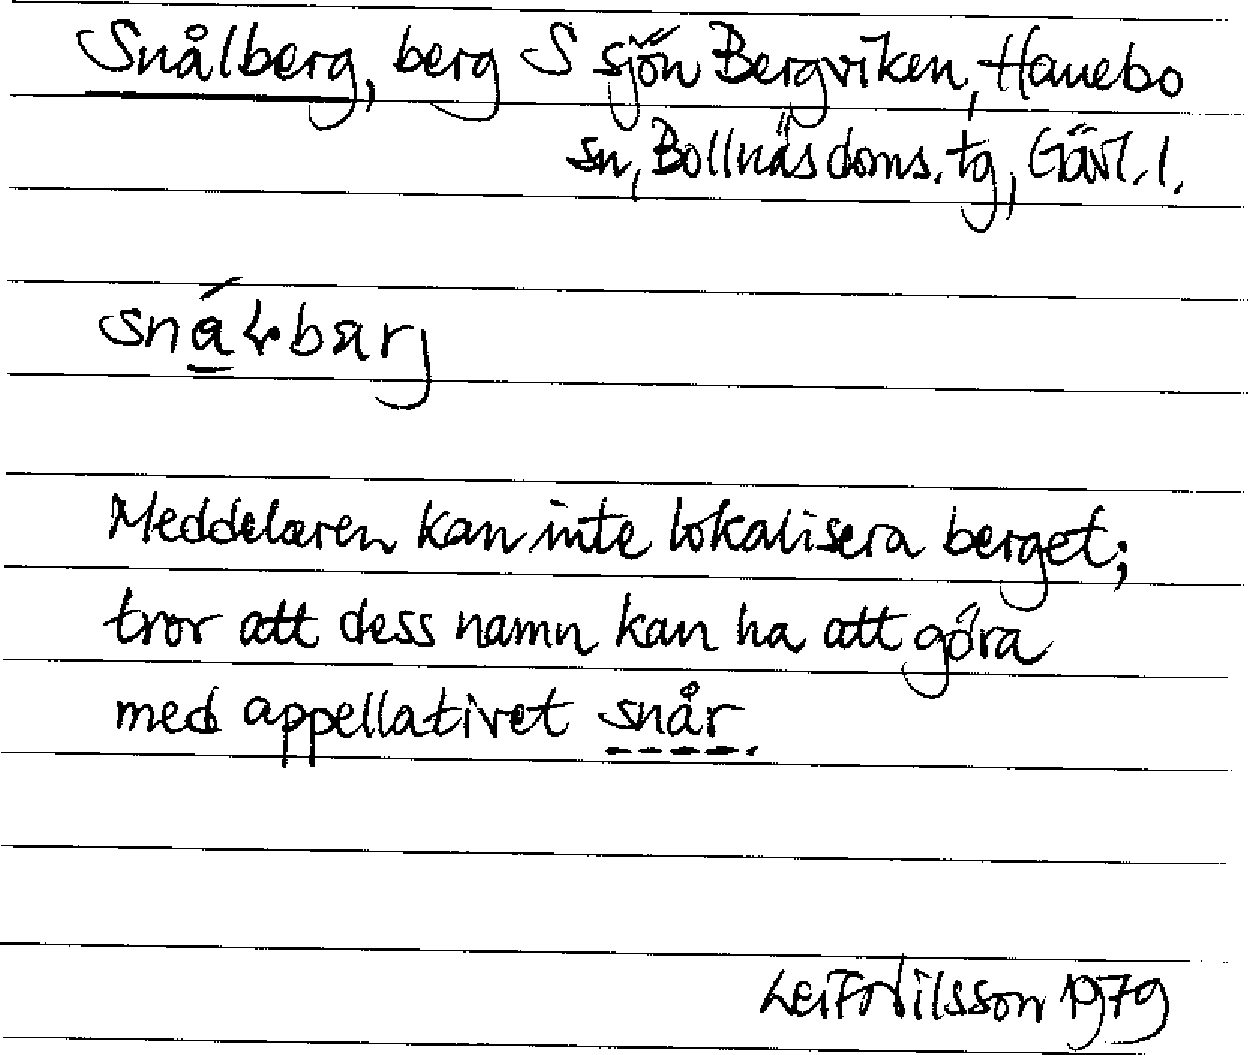 Snålberg, berg S sjön Bergviken, Hanebo
sn, Bollnäs doms. tg, Gävl. l.
Meddelaren kan inte lokalisera berget;
tror att dess namn kan ha att göra
med appellativet snår.
Leif Nilsson 1979